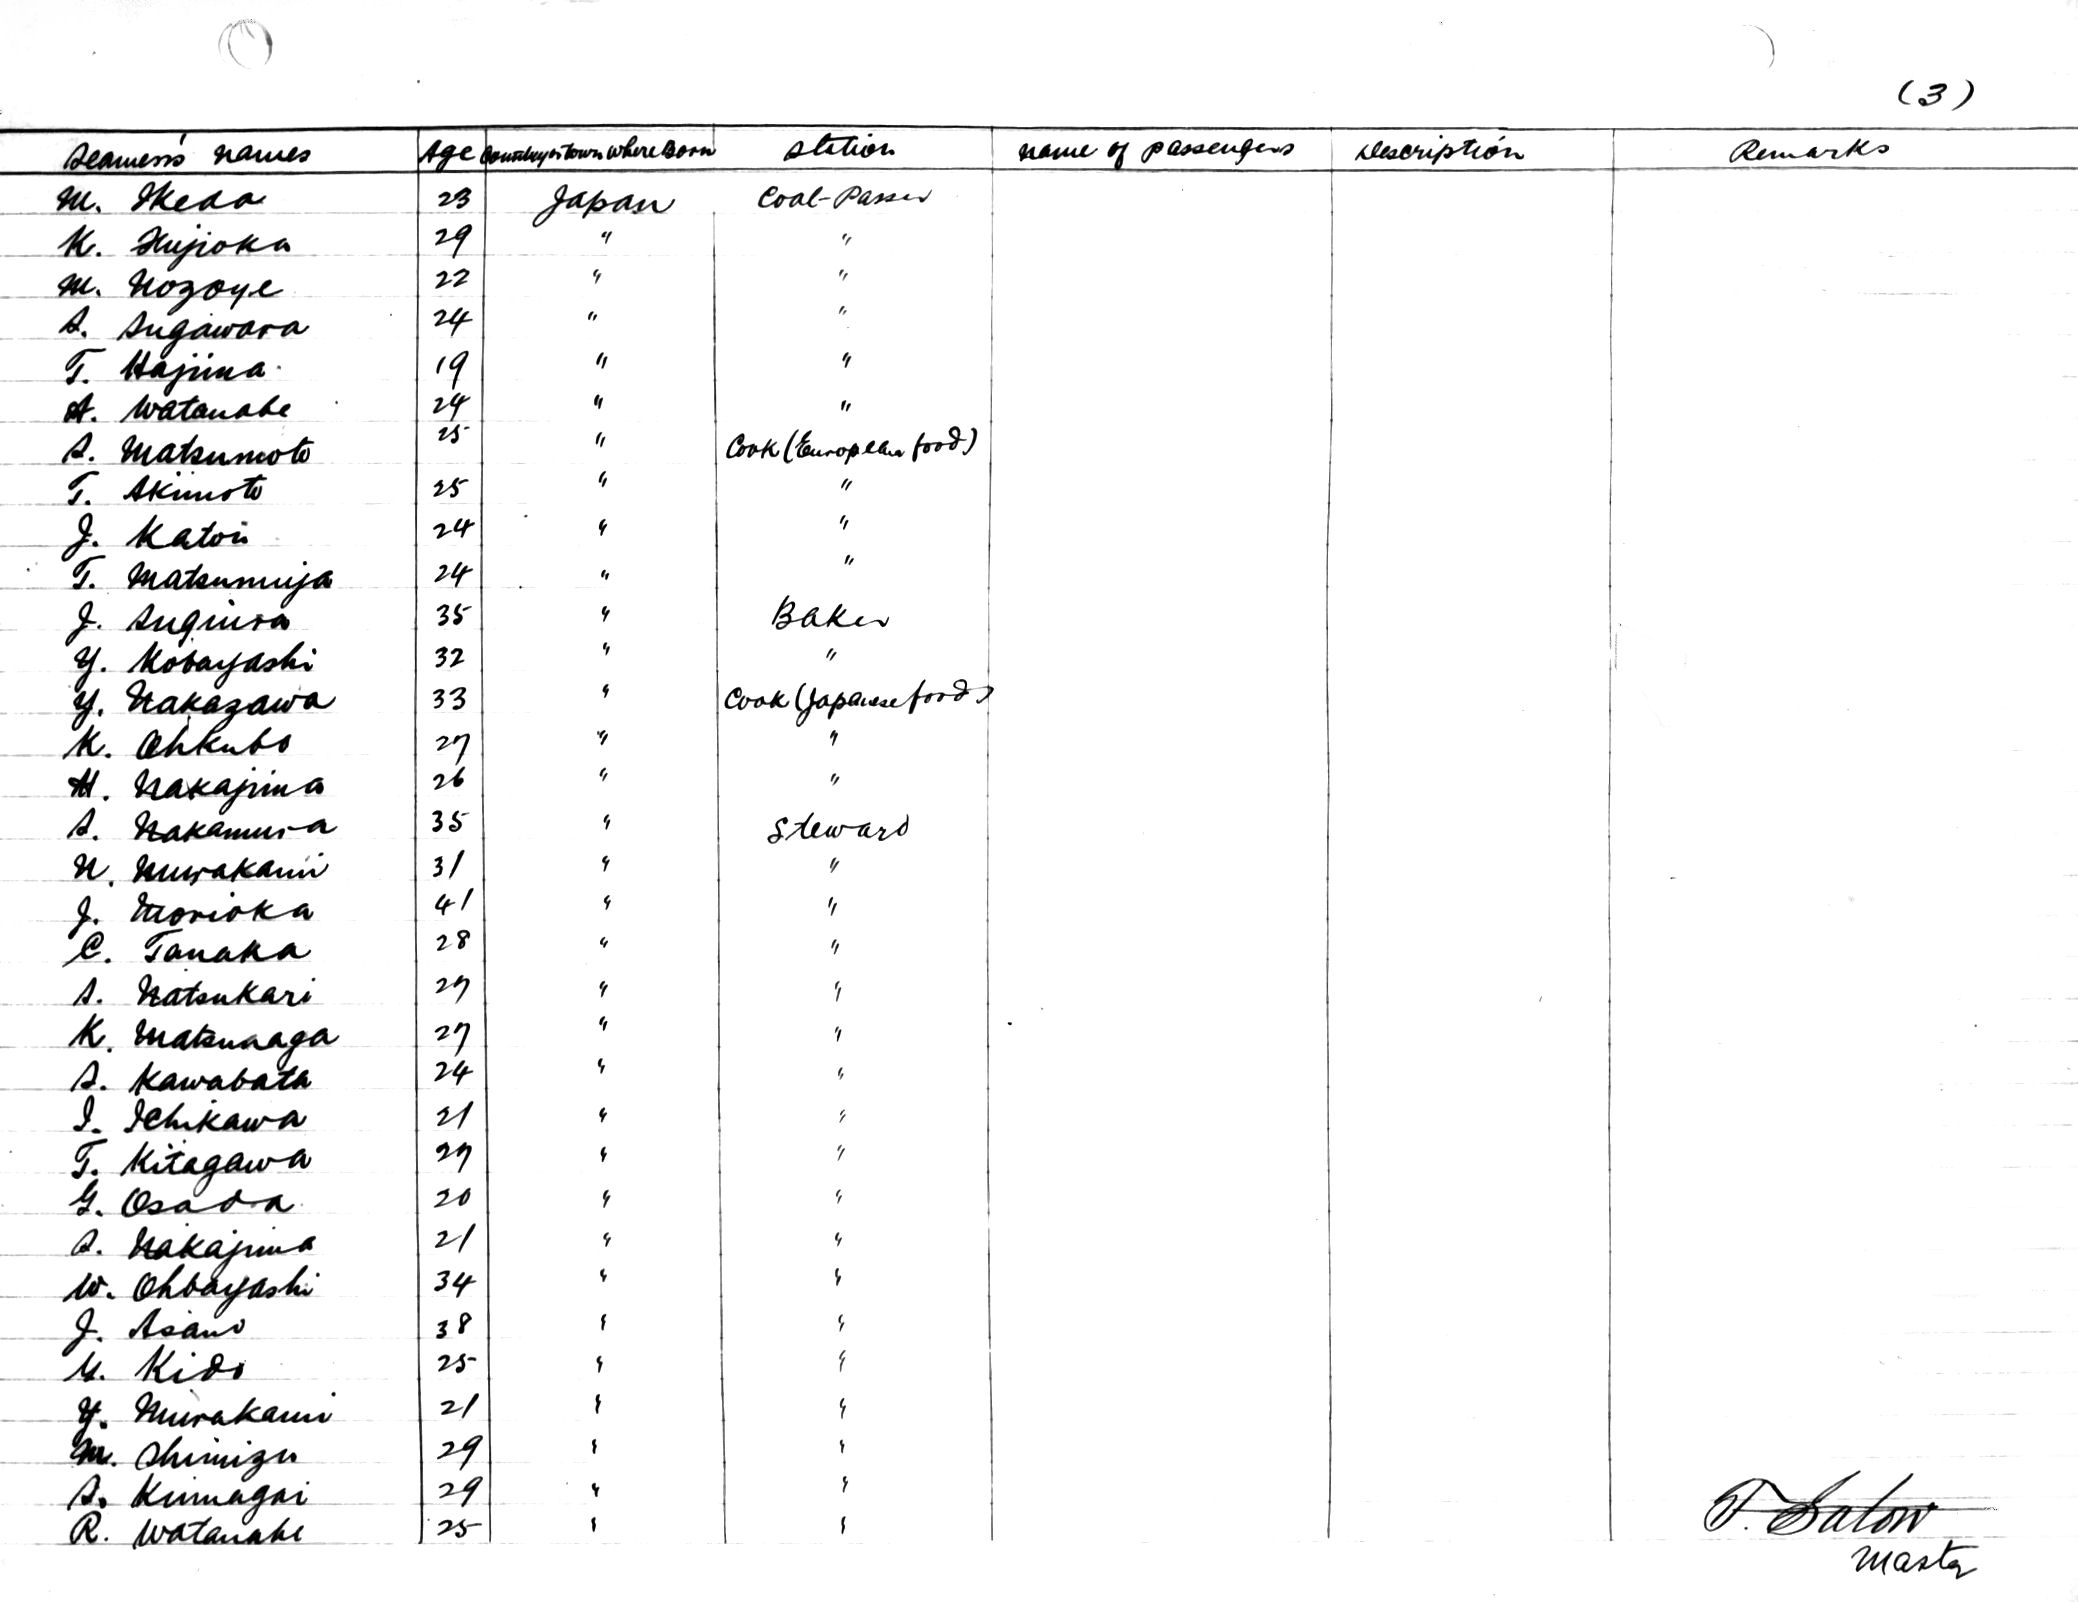 (3)
Seamen's names Age Country or town where Born Station name of passengers Description Remarks
M. Ikeda 23 Japan Coal-Passer
K. Fujioka 29 " "
M. Nozoye 22 " "
S. Sugawara 24 " "
T. Hajima 19 " "
A. Watanabe 24 " "
S. Matsumoto 25 " Cook (European food)
T. Akimoto 25 " "
J. Katori 24 " "
T. Matsumiya 24 " "
J. Sugiura 35 " Baker
Y. Kobayashi 32 " "
Y. Nakazawa 33 " Cook (Japanese food)
K. Ohkubo 27 " "
H. Nakajima 26 " "
S. Nakamura 35 " Steward
N. Murakami 31 " "
J. Morioka 41 " "
C. Tanaka 28 " "
S. Natsukari 27 " "
K. Matsunaga 27 " "
S. Kawabata 24 " "
I. Ichikawa 21 " "
T. Kitagawa 27 " "
G. Osada 20 " "
S. Nakajima 21 " "
W. Ohbayashi 34 " "
J. Asano 38 " "
Y. Kido 25 " "
Y. Murakami 21 " "
M. Shimizu 29 " "
S. Kumagai 29 " "
R. Watanabe 25 " "
T. Satow
Master